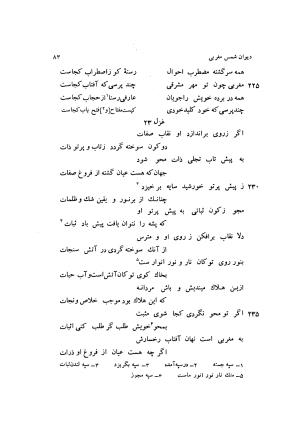 دیوان شمس مغربی ۸۳
همه سرگشته مضطرب احوال رستهٔ کو ز اضطراب کجاست
۲۲۵ مغربی چون تو مهر مشرقی چند پرسی که آفتاب کجاست
همه در پرده خویش راجویان عارفی رسته۱ از حجاب کجاست
چند پرسی که خود کلید خوری کیست مفتاح [و] فتح باب کجاست
غزل ۲۳
اگر زروی براندازد او نقاب صفات
دو کون سوخته گردد ز تاب و پرتو ذات
به پیش تاب تجلی ذات محو شود
جهان که هست عیان گشته از فروغ صفات
۲۳۰ ز پیش پرتو خورشید سایه برخیزد۲
چنانک از بر نور و یقین شک و ظلمات
مجو ز کون ثباتی به پیش پرتو او
که پشه را نتوان یافت پیش باد ثبات۳
دلا نقاب برافکن ز روی او و مترس
از آنک سوخته گردی در آتش سبحات
بنور روی تو کان نار و نور انوار ست۵
بخاک کوی تو کان آتش است و آب حیات
ازین هلاک میندیش و باش مردانه
که این هلاک بود موجب خلاص و نجات
۲۳۵ اگر تو محو نگردی کجا شوی مثبت
بمحو۶ خویش طلب گر طلب کنی اثبات
به مغربی است نهان آفتاب رخسارش
اگر چه هست عیان از فروغ او ذرات
۱– سپه جسته ۲– ورسپه‌آمده ۳– سپه بگریزد ۴– سپه اندر ثبات
۵– ملک نار نور انور ماست ۶– سپه مجوز